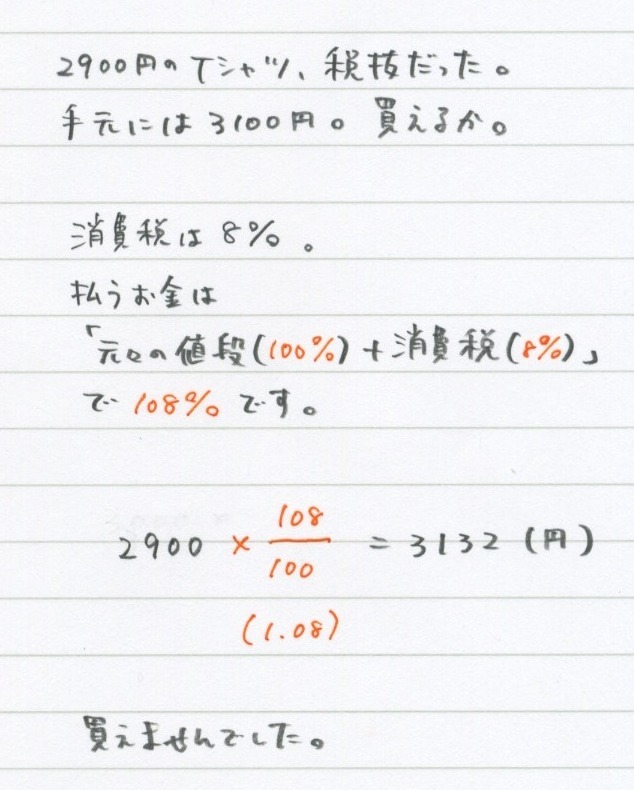 2900円のTシャツ、税抜だった。
手元には3100円。買えるか。
消費税は8%。
払うお金は
「元々の値段(100%)+消費税(8%)」
で108%です。
2900 × 108/100 = 3132 (円)
(1.08)
買えませんでした。